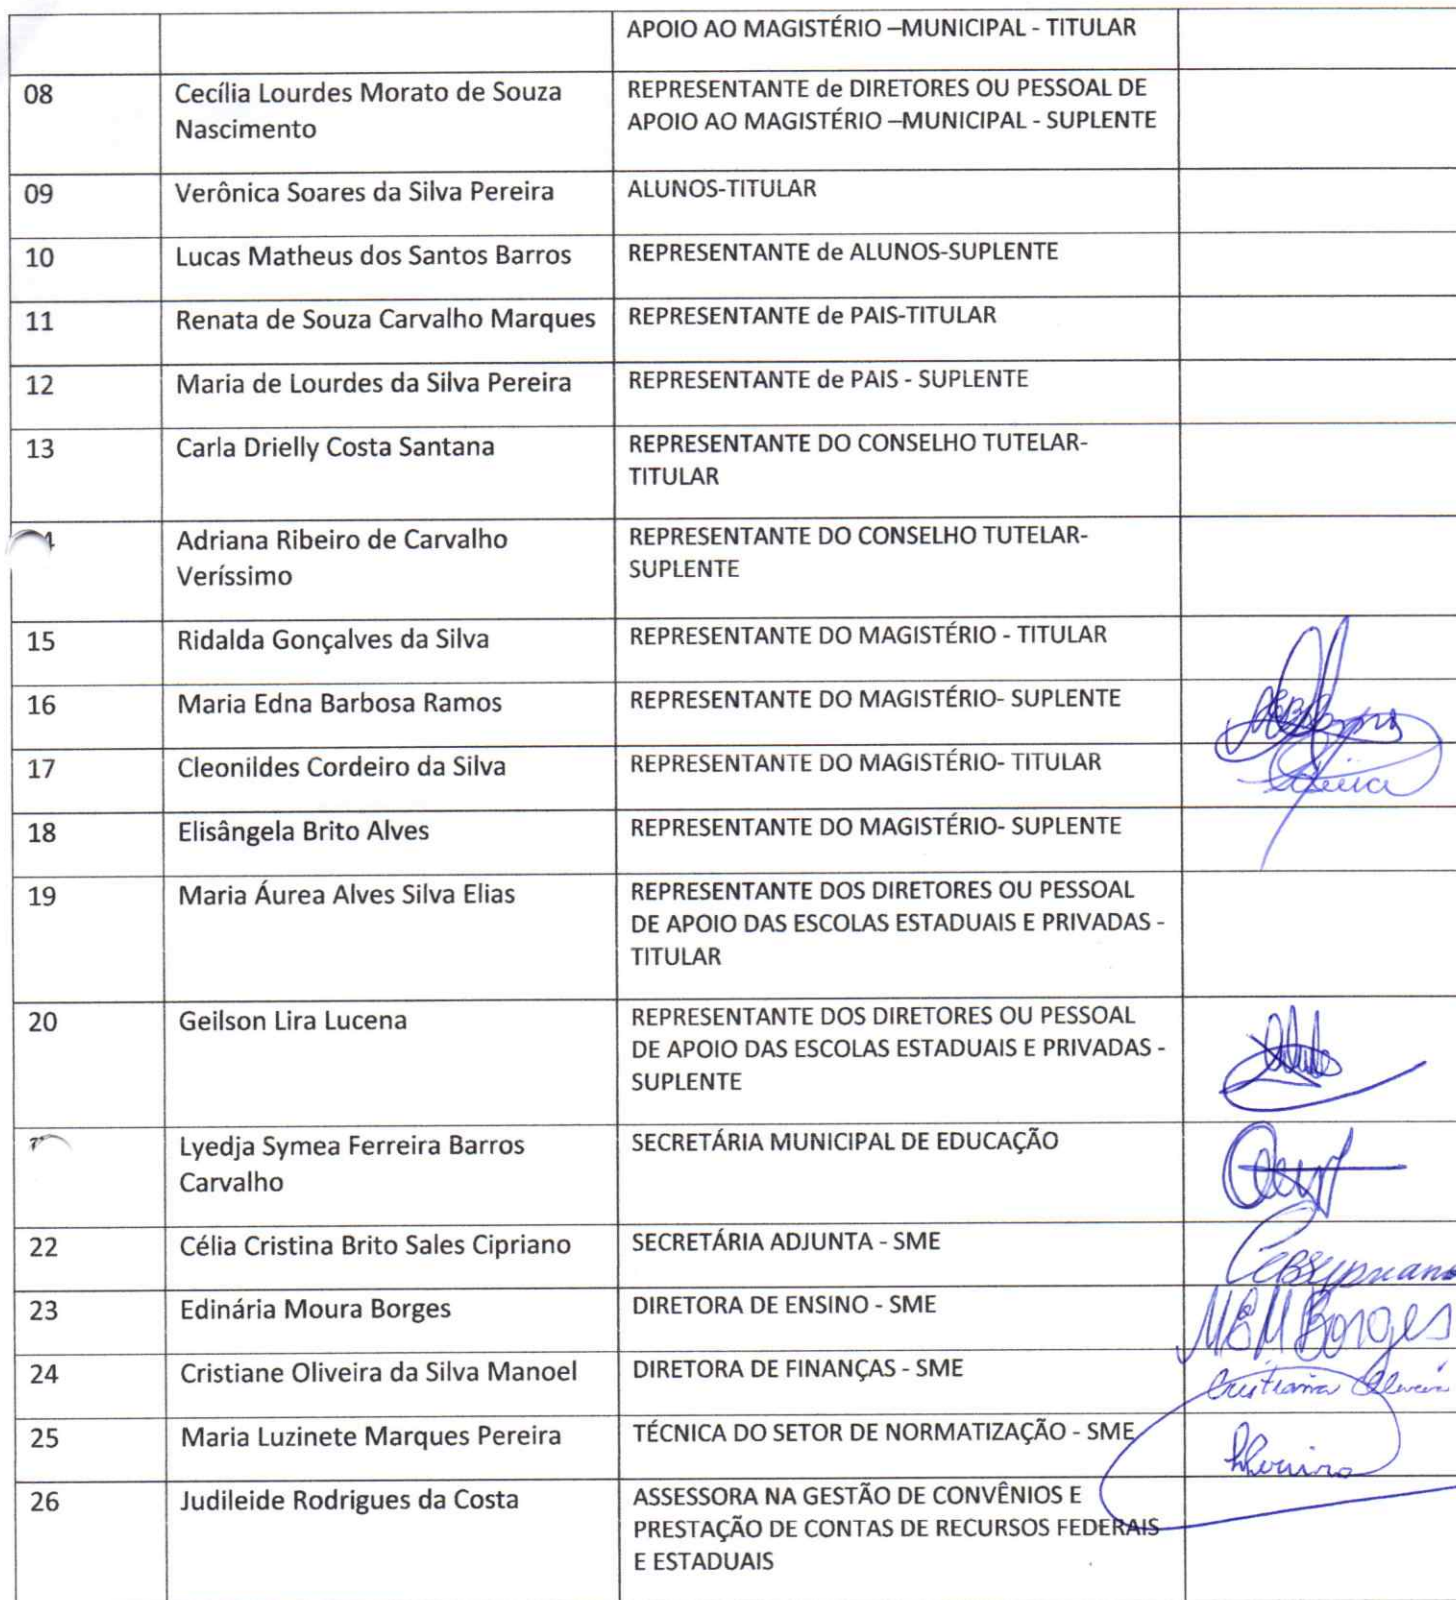 APOIO AO MAGISTÉRIO –MUNICIPAL - TITULAR
08 Cecília Lourdes Morato de Souza REPRESENTANTE de DIRETORES OU PESSOAL DE
Nascimento APOIO AO MAGISTÉRIO –MUNICIPAL - SUPLENTE
09 Verônica Soares da Silva Pereira ALUNOS-TITULAR
10 Lucas Matheus dos Santos Barros REPRESENTANTE de ALUNOS-SUPLENTE
11 Renata de Souza Carvalho Marques REPRESENTANTE de PAIS-TITULAR
12 Maria de Lourdes da Silva Pereira REPRESENTANTE de PAIS - SUPLENTE
13 Carla Drielly Costa Santana REPRESENTANTE DO CONSELHO TUTELAR-
TITULAR
4 Adriana Ribeiro de Carvalho REPRESENTANTE DO CONSELHO TUTELAR-
Veríssimo SUPLENTE
15 Ridalda Gonçalves da Silva REPRESENTANTE DO MAGISTÉRIO - TITULAR
16 Maria Edna Barbosa Ramos REPRESENTANTE DO MAGISTÉRIO- SUPLENTE
17 Cleonildes Cordeiro da Silva REPRESENTANTE DO MAGISTÉRIO- TITULAR
18 Elisângela Brito Alves REPRESENTANTE DO MAGISTÉRIO- SUPLENTE
19 Maria Áurea Alves Silva Elias REPRESENTANTE DOS DIRETORES OU PESSOAL
DE APOIO DAS ESCOLAS ESTADUAIS E PRIVADAS -
TITULAR
20 Geilson Lira Lucena REPRESENTANTE DOS DIRETORES OU PESSOAL
DE APOIO DAS ESCOLAS ESTADUAIS E PRIVADAS -
SUPLENTE
Lyedja Symea Ferreira Barros SECRETÁRIA MUNICIPAL DE EDUCAÇÃO
Carvalho
22 Célia Cristina Brito Sales Cipriano SECRETÁRIA ADJUNTA - SME
23 Edinária Moura Borges DIRETORA DE ENSINO - SME MEMBorges
24 Cristiane Oliveira da Silva Manoel DIRETORA DE FINANÇAS - SME
25 Maria Luzinete Marques Pereira TÉCNICA DO SETOR DE NORMATIZAÇÃO - SME
26 Judileide Rodrigues da Costa ASSESSORA NA GESTÃO DE CONVÊNIOS E
PRESTAÇÃO DE CONTAS DE RECURSOS FEDERAIS
E ESTADUAIS